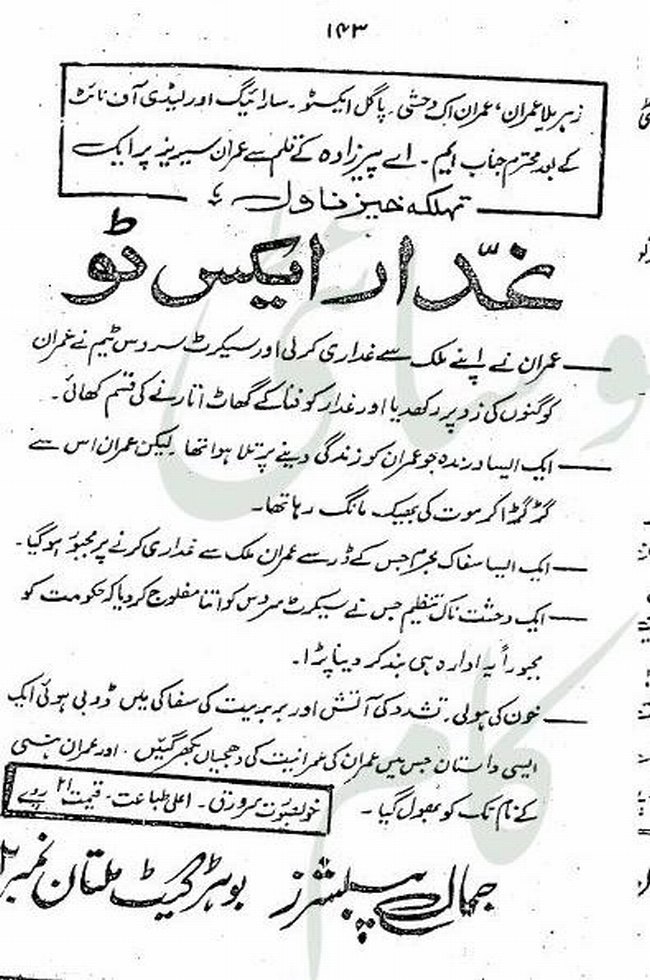 ۱۴۳
زہریلا عمران، عمران اک وحشی، پاگل ایکسٹو۔ سارائیگ اور لیڈی آف نائٹ
کے بعد محترم جناب ایم۔ اے پیرزادہ کے قلم سے عمران سیریز پر ایک
تہلکہ خیز ناول
غدّار ایکس ٹو
عمران نے اپنے ملک سے غداری کرلی اور سیکرٹ سروس ٹیم نے عمران
کو گنوں کی زد پر رکھدیا اور غدار کو فنا کے گھاٹ اتارنے کی قسم کھائی۔
ایک ایسا درندہ جو عمران کو زندگی دینے پر تلا ہوا تھا۔ لیکن عمران اس سے
گڑگڑا کر موت کی بھیک مانگ رہا تھا۔
ایک ایسا سفاک مجرم جس کے ڈر سے عمران ملک سے غداری کرنے پر مجبور ہوگیا۔
ایک دہشت ناک تنظیم جس نے سیکرٹ سروس کو اتنا مفلوج کر دیا کہ حکومت کو
مجبوراً یہ ادارہ ہی بند کر دینا پڑا۔
خون کی ہولی۔ تشدد کی آتش اور بربریت کی سفاکی میں ڈوبی ہوئی ایک
ایسی داستان جس میں عمران کی عمرانیت کی دھجیاں بکھر گئیں۔ اور عمران ہنسی
کے نام تک کو بھول گیا۔
خوبصورت سرورق۔ اعلیٰ طباعت۔ قیمت ۲۱ روپے
جمال پبلشرز بوہڑ گیٹ ملتان نمبر ۲